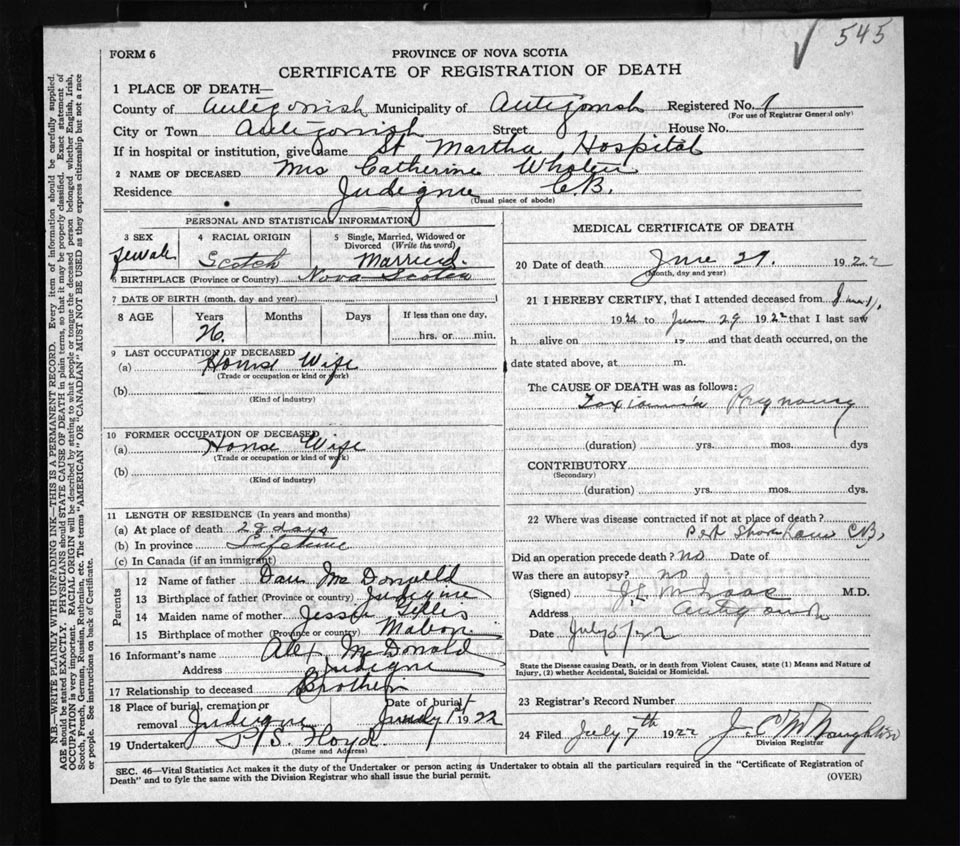 545
FORM 6
PROVINCE OF NOVA SCOTIA
CERTIFICATE OF REGISTRATION OF DEATH
1 PLACE OF DEATH—
County of Antigonish Municipality of Antigonish Registered No. 1
(For use of Registrar General only)
City or Town Antigonish Street House No.
If in hospital or institution, give name St Martha Hospital
2 NAME OF DECEASED Mrs Catherine
Residence Judique C.B.
(Usual place of abode)
PERSONAL AND STATISTICAL INFORMATION
3 SEX female
4 RACIAL ORIGIN Scotch
5 Single, Married, Widowed or Divorced (Write the word) Married
6 BIRTHPLACE (Province or Country) Nova Scotia
7 DATE OF BIRTH (month, day and year)
8 AGE Years 26 Months Days If less than one day, hrs. or min.
9 LAST OCCUPATION OF DECEASED
(a) House Wife
(Trade or occupation or kind of work)
(b)
(Kind of industry)
10 FORMER OCCUPATION OF DECEASED
(a) House Wife
(Trade or occupation or kind of work)
(b)
(Kind of industry)
11 LENGTH OF RESIDENCE (In years and months)
(a) At place of death 28 days
(b) In province Lifetime
(c) In Canada (if an immigrant)
Parents
12 Name of father Dan McDonald
13 Birthplace of father (Province or country) Judique
14 Maiden name of mother Jessie Gillis
15 Birthplace of mother (Province or country) Mabou
16 Informant's name Alex McDonald
Address Judique
17 Relationship to deceased Brother
18 Place of burial, cremation or removal Judique Date of burial July 1st 1922
19 Undertaker P. S. Floyd
(Name and Address)
MEDICAL CERTIFICATE OF DEATH
20 Date of death June 29. 1922
(Month, day and year)
21 I HEREBY CERTIFY, that I attended deceased from June 1,
19 to June 29 1922 that I last saw
h alive on 19 and that death occurred, on the
date stated above, at m.
The CAUSE OF DEATH was as follows:
Pregnancy
(duration) yrs. mos. dys
CONTRIBUTORY
(Secondary)
(duration) yrs. mos. dys.
22 Where was disease contracted if not at place of death?
C.B.
Did an operation precede death? no Date of
Was there an autopsy? no
(Signed) M.D.
Address Antigonish
Date July 5/22
State the Disease causing Death, or in death from Violent Causes, state (1) Means and Nature of
Injury, (2) whether Accidental, Suicidal or Homicidal.
23 Registrar's Record Number
24 Filed July 7th 1922 J. C. McNaughton
Division Registrar
SEC. 46—Vital Statistics Act makes it the duty of the Undertaker or person acting as Undertaker to obtain all the particulars required in the "Certificate of Registration of
Death" and to fyle the same with the Division Registrar who shall issue the burial permit.
(OVER)
N.B.—WRITE PLAINLY WITH UNFADING INK—THIS IS A PERMANENT RECORD. Every item of information should be carefully supplied.
AGE should be stated EXACTLY. PHYSICIANS should STATE CAUSE OF DEATH in plain terms, so that it may be properly classified. Exact statement of
OCCUPATION is very important. RACIAL ORIGIN will be described by stating to what people or tongue the deceased person belonged whether English, Irish,
Scotch, French, German, Russian, Ruthenian, etc. The terms "AMERICAN" OR "CANADIAN" MUST NOT BE USED as they express citizenship but not a race
or people. See instructions on back of Certificate.